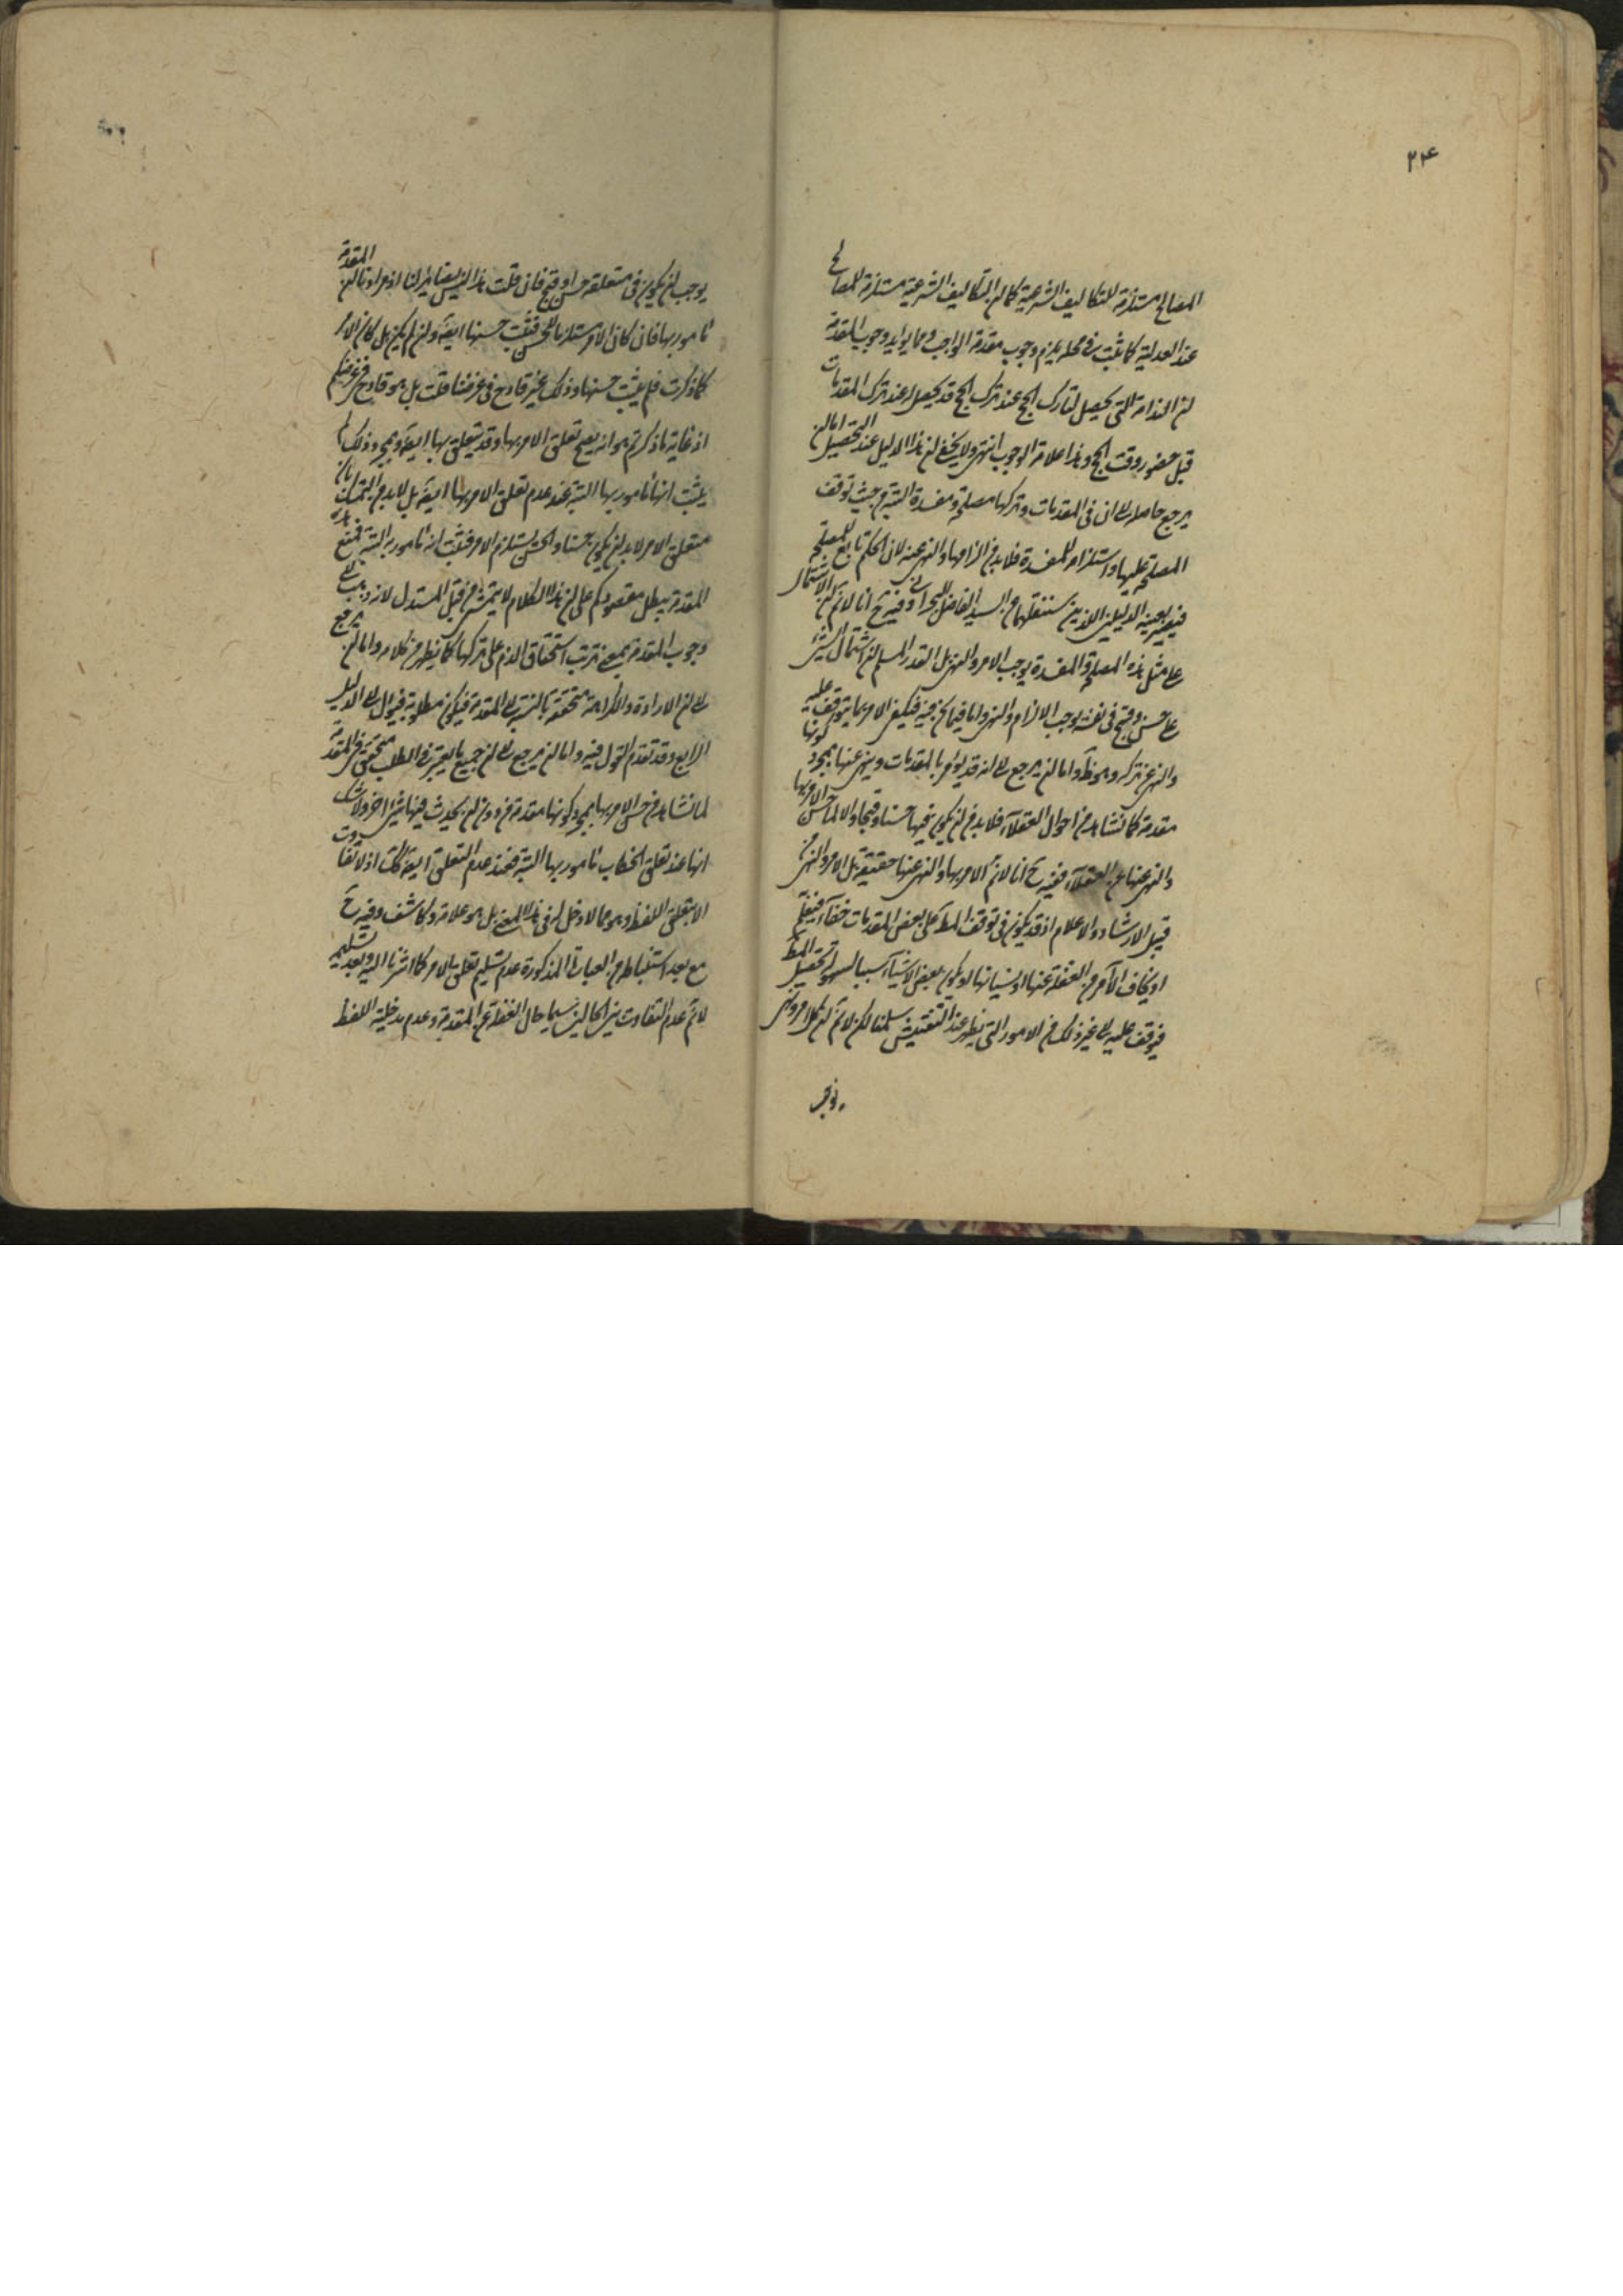 ۲۴
المصالح مستلزمة للتكاليف الشرعية كما ان التكاليف الشرعية مستلزمة للمصالح
عند العدلية كما ثبت في محله يلزم وجوب مقدمة الواجب ومما يؤيد وجوب المقدمة
ان الندامة التي يحصل لتارك الحج عند ترك الحج قد يحصل له عند ترك المقدمات
قبل حضور وقت الحج وهذا علامة الوجوب انتهى ولا يخفى ان هذا الدليل عند التحصيل اما ان
يرجع حاصله الى ان في المقدمات وتركها مصلحة ومفسدة البتة من حيث توقف
المصلحة عليها واستلزامه للمفسدة فلا بد من الزامها والنهي عنه لان الحكم تابع للمصلحة
فيصير بعينه الدليلين اللذين سننقلهما عن السيد الفاضل البحراني وفيه ح انا لانم ان الاشتمال
على مثل هذه المصلحة والمفسدة يوجب الامر والنهي بل القدر المسلم ان اشتمال الشئ
على حسن وقبح في نفسه يوجب الالزام والنهي واما فيما نحن فيه فيكفي الامر بما يتوقف عليه
والنهي عن تركه وهو ظ واما ان يرجع الى انه قد يؤمر بالمقدمات وينهى عنها بمجرد كونها
مقدمة كما نشاهد من احوال العقلاء فلا بد من ان يكون فيها حسنا وقبحا والا لما حسن الامر بها
والنهي عنها عن العقلاء ففيه ح انا لانم الامر بها والنهي عنها حقيقة بل الامر والنهي من
قبيل الارشاد والاعلام اذ قد يكون في توقف المط على بعض المقدمات خفاء فيعلم
او يخاف الآمر من الغفلة عنها او نسيانها او يكون بعض الاشياء سببا لسهولة تحصيل المط
فيوقف عليه الى غير ذلك من الامور التي يظهر عند التفتيش سلمنا لكن لانم ان كل امر ونهي
يوجب
يوجب ان يكون في متعلقه حسن او قبح فان قلت هذا ليس يضائرنا اذ مرادنا ان المقدمة
مامور بها فان كان الامر مستلزما للحسن فثبت حسنها ايضا وان لم يكن بل كان الامر
كما ذكرت فلم يثبت حسنها وذلك غير قادح في غرضنا قلت بل هو قادح في غرضكم
اذ غاية ما ذكرتم هو انه يصح تعلق الامر بها وقد يتعلق بها ايضا وبمجرد ذلك لم
يثبت انها مامور بها البتة عند عدم تعلق الامر بها ايضا بل لا بد من التمسك بان
متعلق الامر لا بد ان يكون حسنا والحسن يستلزم الامر فثبت انه مامور به البتة فمنع هذه
المقدمة يبطل مقصودكم على ان هذا الكلام لا يتمشى من قبل المستدل لانه ذهب الى
وجوب المقدمة بمعنى ترتب استحقاق الذم على تركها كما يظهر من كلامه واما ان يرجع
الى ان الارادة والكراهة متحققة بالنسبة الى المقدمة فيكون مطلوبة فيؤل الى الدليل
الرابع وقد تقدم القول فيه واما ان يرجع الى ان جميع ما يعتبر في الطلب متحقق في المقدمة
لما نشاهد من حسن الامر بها بمجرد كونها مقدمة من دون ان يحدث فيها شئ اخر ولا شك
انها عند تعلق الخطاب مامور بها البتة فعند عدم التعلق ايضا كك اذ لا تفاوت
الا بتعلق اللفظ وهو مما لا دخل له في هذا المعنى بل هو علامة وكاشف وفيه ح
مع بعد استنباطه من العبارة المذكورة عدم تسليم تعلق الامر كما اشرنا اليه وبعد تسليمه
لانم عدم التفاوت بين الحالين سيما حال الغفلة عن المقدمة وعدم مدخلية اللفظ